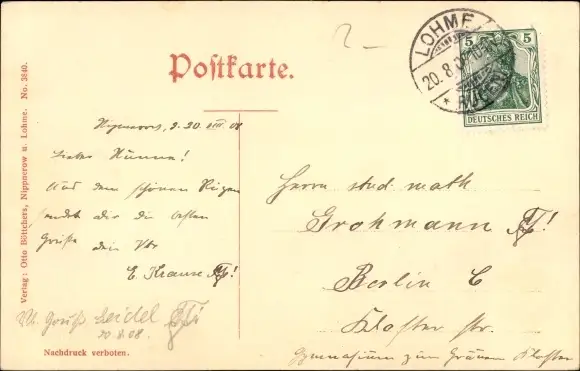 Postkarte.
LOHME
20.8.
* RÜGEN
5 5
DEUTSCHES REICH
Verlag: Otto Böttchers, Nippnerow u. Lohme. No. 3840.
Nipmerow, d. 20 VIII 08
Lieber Hanne!
Aus dem schönen Rügen
sendet dir die besten
Grüße dein Vbr
E. Krause !
Vbl. Gruß Seidel
20.8.08.
Nachdruck verboten.
Herrn stud. math
Grohmann !
Berlin C
Kloster str.
Gymnasium zum Grauen Kloster